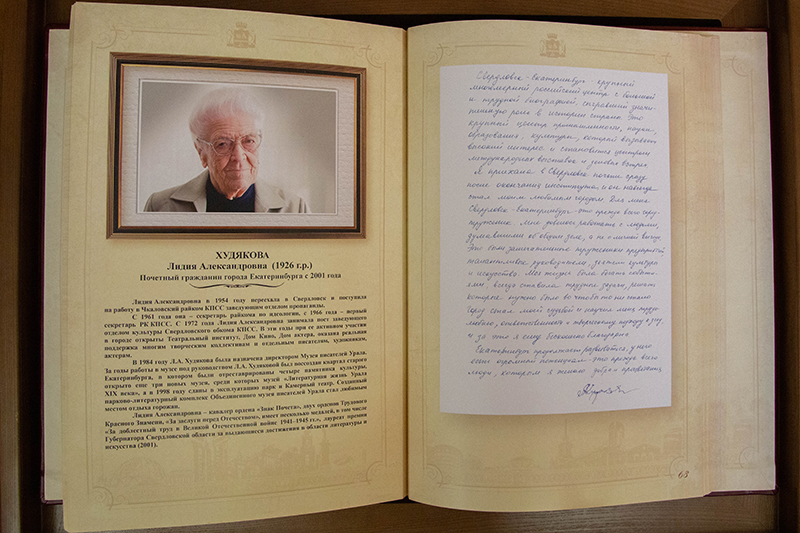 ХУДЯКОВА
Лидия Александровна (1926 г.р.)
Почетный гражданин города Екатеринбурга с 2001 года
Лидия Александровна в 1954 году переехала в Свердловск и поступила
на работу в Чкаловский райком КПСС заведующим отделом пропаганды.
С 1961 года она – секретарь райкома по идеологии, с 1966 года – первый
секретарь РК КПСС. С 1972 года Лидия Александровна занимала пост заведующего
отделом культуры Свердловского обкома КПСС. В эти годы при ее активном участии
в городе открыты Театральный институт, Дом Кино, Дом актера, оказана реальная
поддержка многим творческим коллективам и отдельным писателям, художникам,
актерам.
В 1984 году Л.А. Худякова была назначена директором Музея писателей Урала.
За годы работы в музее под руководством Л.А. Худяковой был воссоздан квартал старого
Екатеринбурга, в котором были отреставрированы четыре памятника культуры,
открыто еще три новых музея, среди которых музей «Литературная жизнь Урала
XIX века», а в 1998 году сданы в эксплуатацию парк и Камерный театр. Созданный
парково-литературный комплекс Объединенного музея писателей Урала стал любимым
местом отдыха горожан.
Лидия Александровна – кавалер ордена «Знак Почета», двух орденов Трудового
Красного Знамени, «За заслуги перед Отечеством», имеет несколько медалей, в том числе
«За доблестный труд в Великой Отечественной войне 1941–1945 гг.», лауреат премии
Губернатора Свердловской области за выдающиеся достижения в области литературы и
искусства (2001).
Свердловск-Екатеринбург - крупный
российский центр с большой
и трудной биографией, сыгравший значи-
тельную роль в истории страны. Это
крупный центр промышленности, науки,
образования, культуры, который вызывает
высокий интерес и становится центром
международных выставок и деловых встреч.
Я приехала в Свердловск почти сразу
после окончания института и он навсегда
стал моим любимым городом. Для меня
Свердловск-Екатеринбург - это прежде всего
труженик. Мне довелось работать с людьми,
думавшими об общем деле, а не о личной выгоде.
Это были замечательные труженики предприятий
талантливые руководители, деятели культуры
и искусства. Моя жизнь была богата событи-
ями, всегда ставила трудные задачи, решать
которые нужно было во что бы то ни стало
Город стал моей судьбой и научил меня
и за это я ему бесконечно благодарна
Екатеринбург продолжает развиваться, у него
есть огромный потенциал - это прежде всего
люди, которым я желаю добра и процветания
63